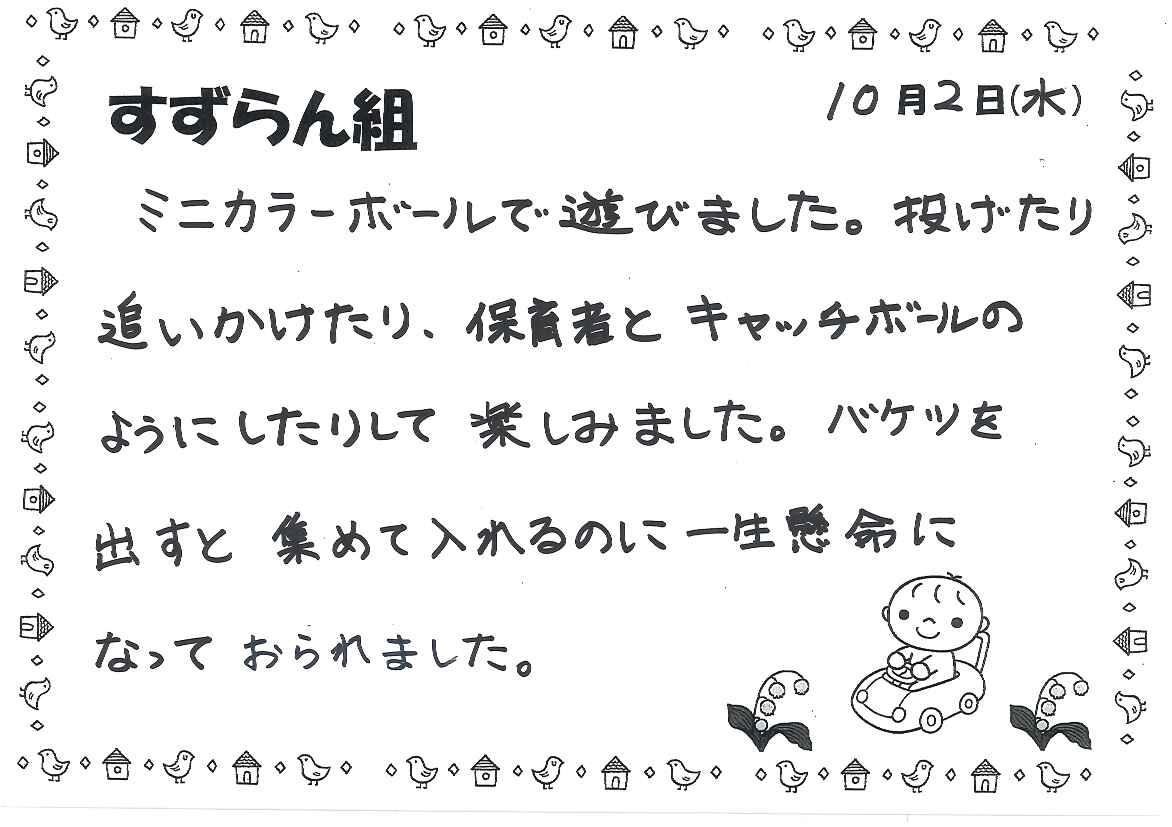 すずらん組
10月2日(水)
ミニカラーボールで遊びました。投げたり
追いかけたり、保育者とキャッチボールの
ようにしたりして楽しみました。バケツを
出すと集めて入れるのに一生懸命に
なっておられました。